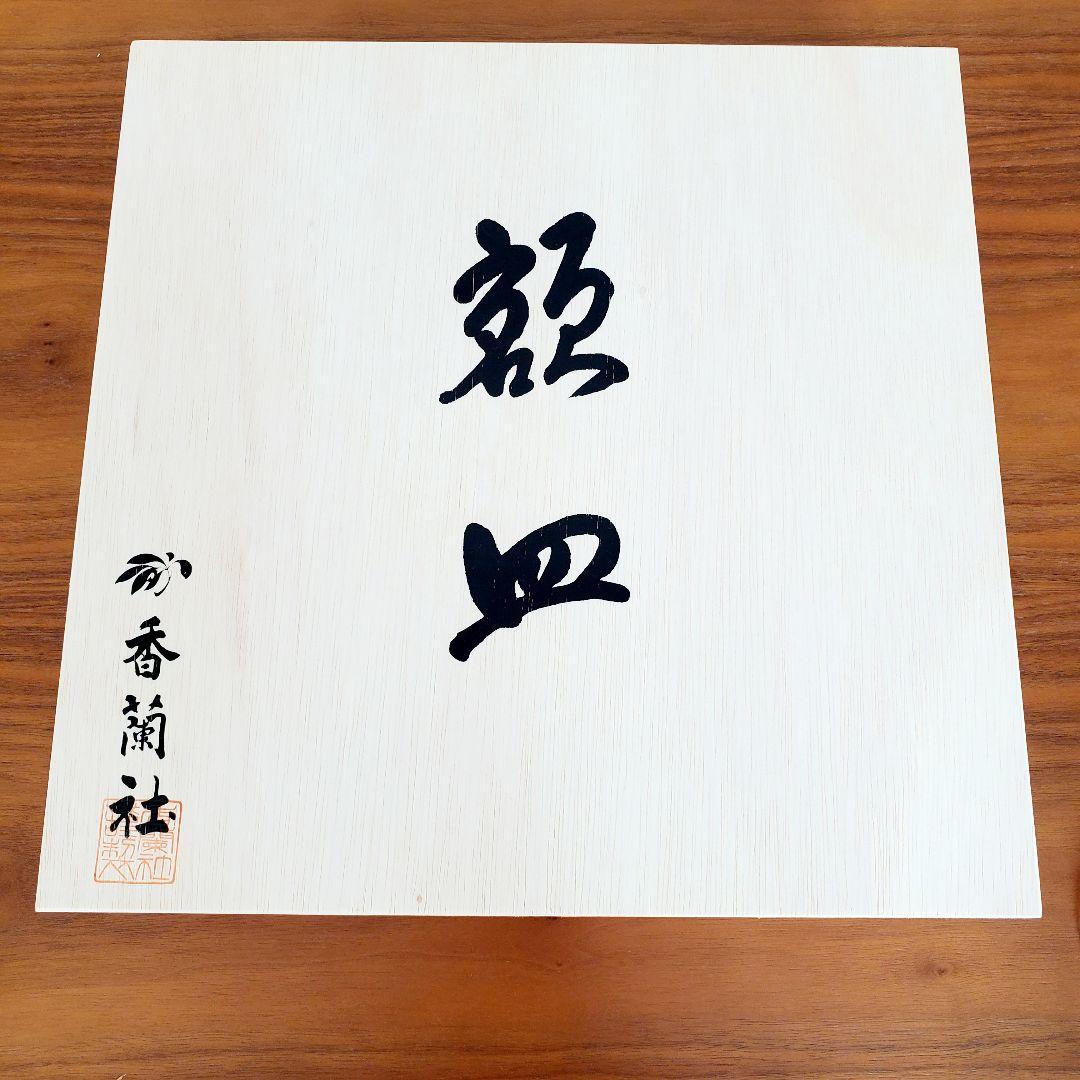 額皿
香蘭社